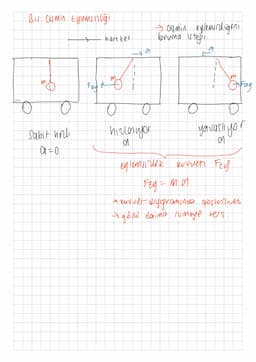 Bir Cismin Eylemsizliği
→ cismin eylemsizliğini
koruma isteği
hareket
a
a
m
m
m
Feg
Feg
sabit hızlı
a=0
hızlanıyor
a
yavaşlıyor
a
eylemsizlik kuvveti Feg
Feg = m.a
→ kuvvet diyagramında gösterilir
→ yönü daima ivmeye ters.